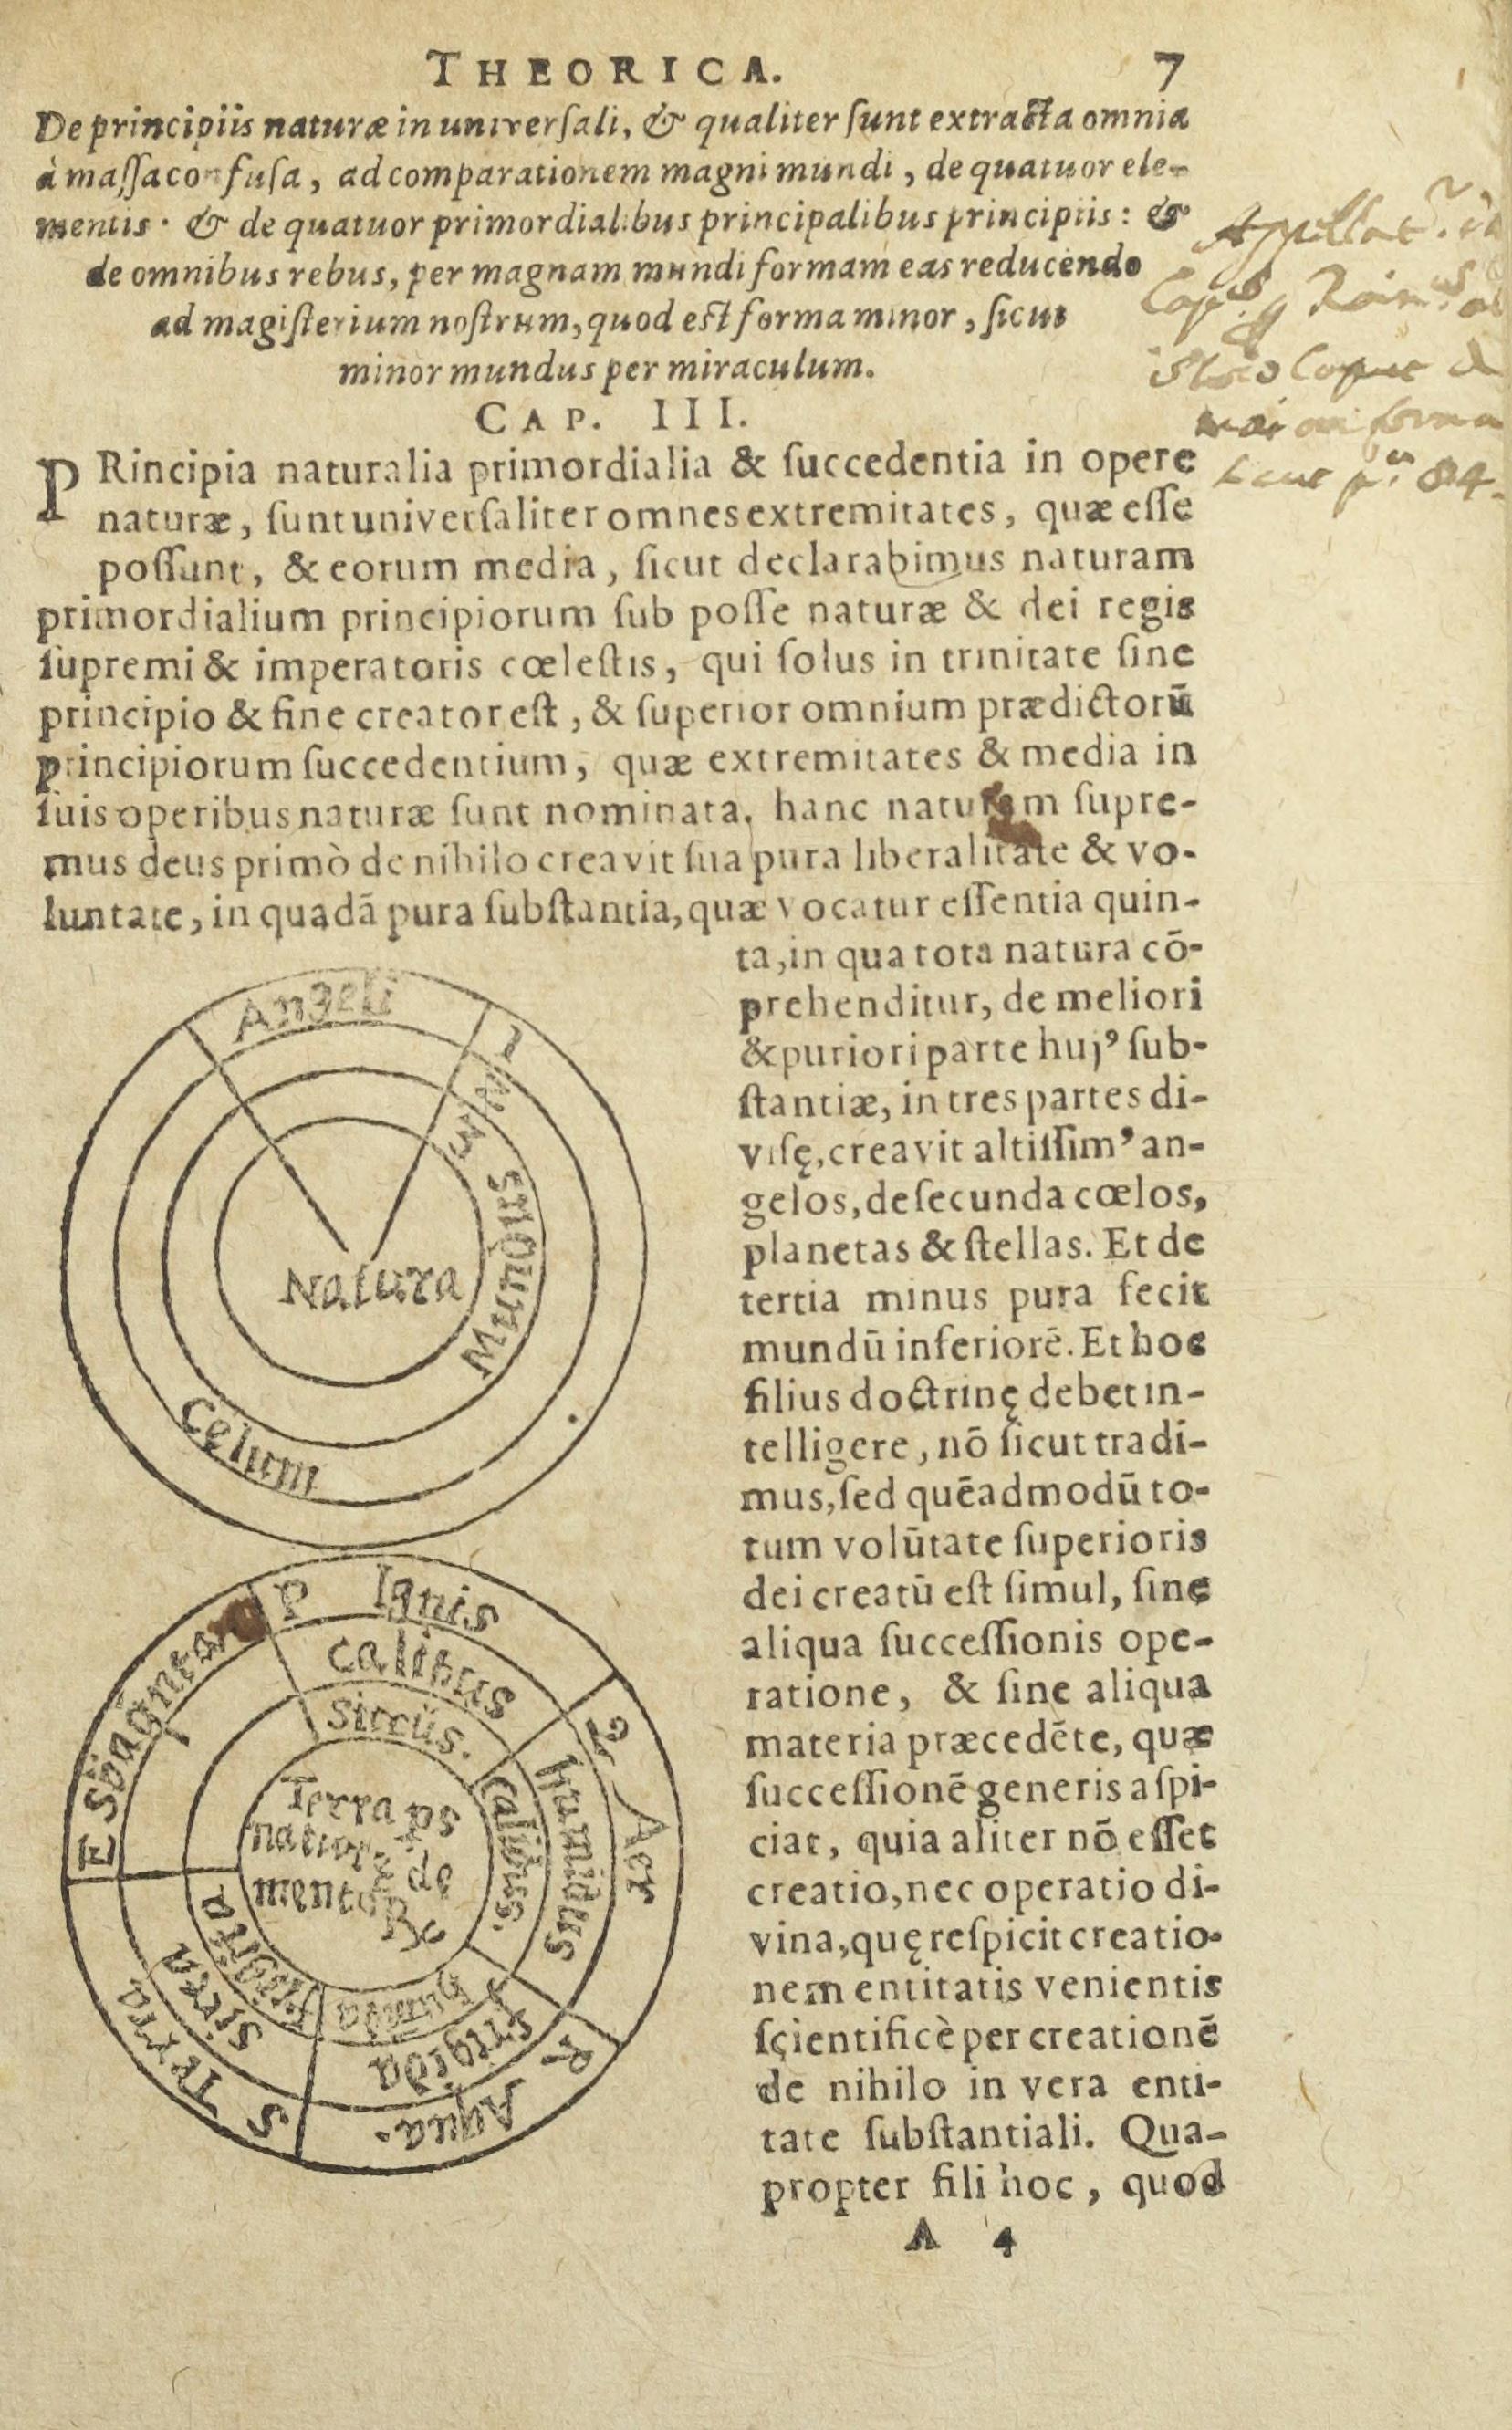 THEORICA. 7
De principiis naturæ in universali, & qualiter sunt extracta omnia
à massa confusa, ad comparationem magni mundi, de quatuor ele-
mentis. & de quatuor primordialibus principalibus principiis: &
de omnibus rebus, per magnam mundi formam eas reducendo
ad magisterium nostrum, quod est forma minor, sicut
minor mundus per miraculum.
CAP. III.
PRincipia naturalia primordialia & succedentia in opere
naturæ, sunt universaliter omnes extremitates, quæ esse
possunt, & eorum media, sicut declarabimus naturam
primordialium principiorum sub posse naturæ & dei regis
supremi & imperatoris cœlestis, qui solus in trinitate sine
principio & fine creator est, & superior omnium prædictorū
principiorum succedentium, quæ extremitates & media in
suis operibus naturæ sunt nominata. hanc naturam supre-
mus deus primò de nihilo creavit sua pura liberalitate & vo-
luntate, in quadã pura substantia, quæ vocatur essentia quin-
ta, in qua tota natura cō-
prehenditur, de meliori
& puriori parte huj' sub-
stantiæ, in tres partes di-
visę, creavit altissim' an-
gelos, de secunda cœlos,
planetas & stellas. Et de
tertia minus pura fecit
mundū inferiorē. Et hoc
filius doctrinę debet in-
telligere, nō sicut tradi-
mus, sed quēadmodū to-
tum volūtate superioris
dei creatū est simul, sine
aliqua successionis ope-
ratione, & sine aliqua
materia præcedēte, quæ
successionē generis aspi-
ciat, quia aliter nō esset
creatio, nec operatio di-
vina, quę respicit creatio-
nem entitatis venientis
scientificè per creationē
de nihilo in vera enti-
tate substantiali. Qua-
propter fili hoc, quod
A 4
Angeli
1
2
3
Mundus
Natura
Celum
P Ignis
calidus
Siccus.
2 Aer
humidus
calidus.
R Aqua.
frigida
humida
S Terra
sicca
frigida
E
Terra ps
de